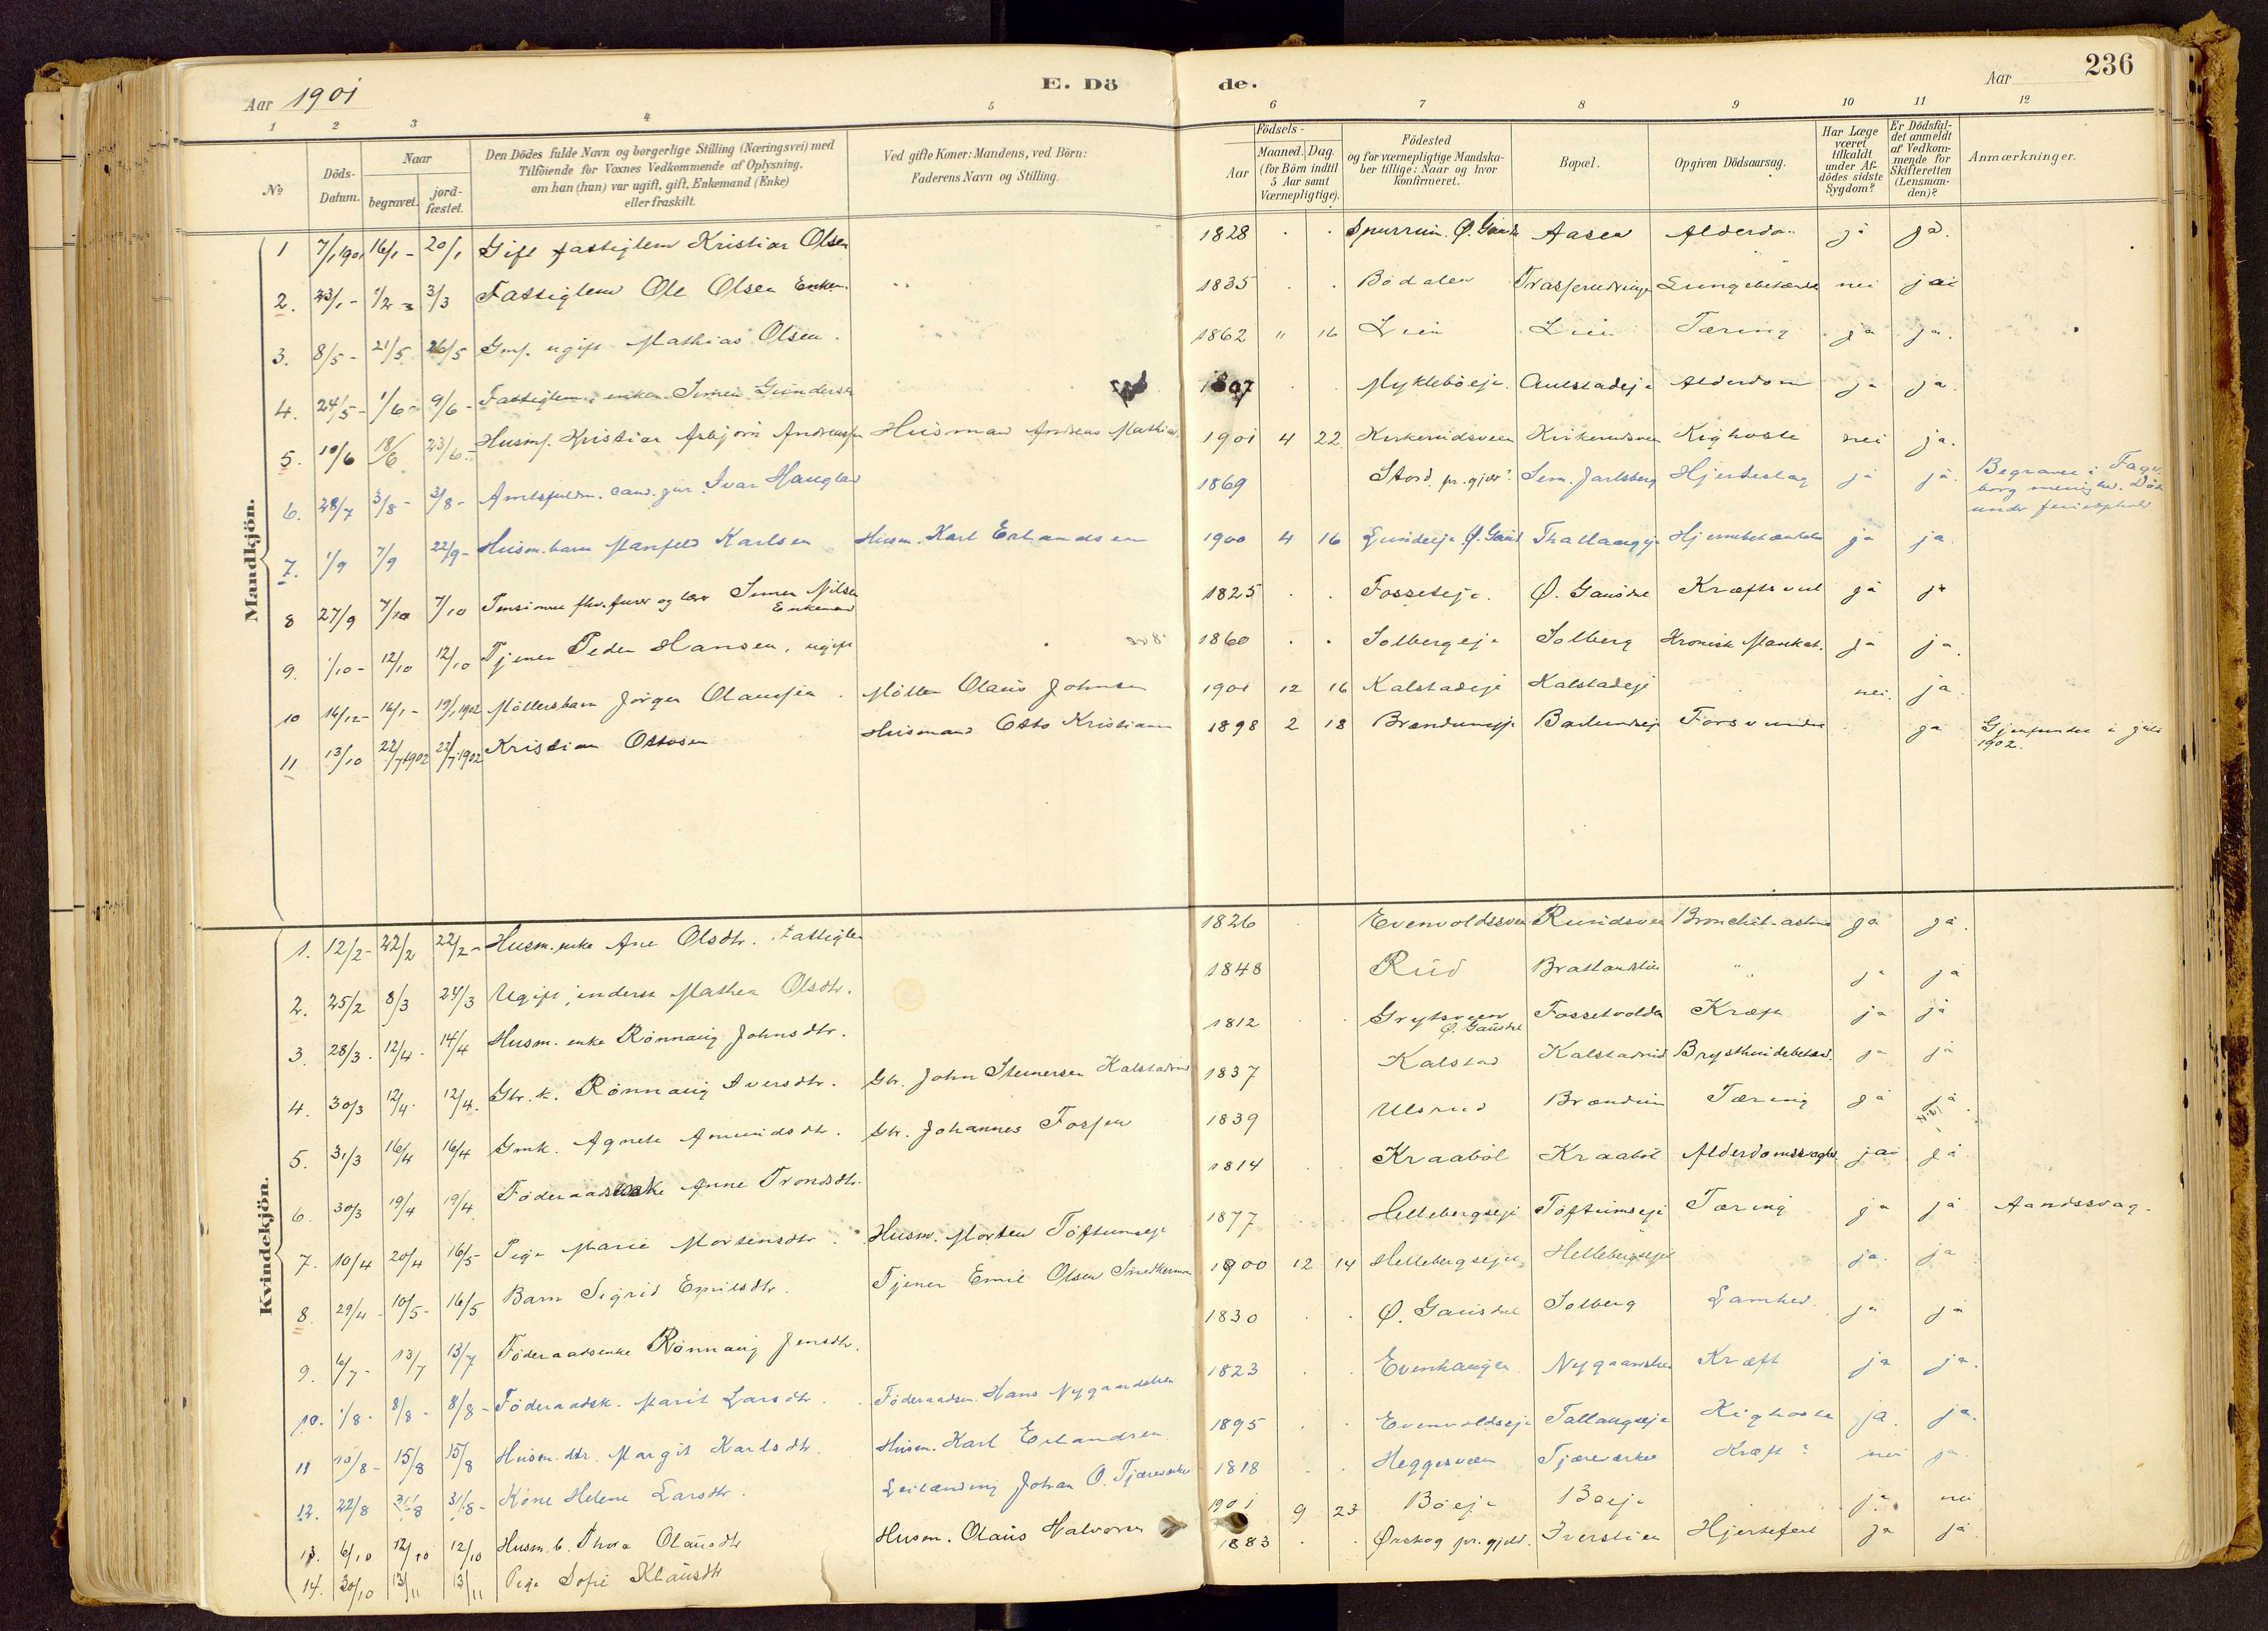 Aar 1901
E. Dö
de.
Aar
236
1 2 3 4 5 6 7 8 9 10 11 12
№
Döds-
Datum.
Naar
begravet.
jord-
fæstet.
Den Dödes fulde Navn og borgerlige Stilling (Næringsvei) med
Tilföiende for Voxnes Vedkommende af Oplysning,
om han (hun) var ugift, gift, Enkemand (Enke)
eller fraskilt.
Ved gifte Koner: Mandens, ved Börn:
Faderens Navn og Stilling.
Födsels-
Aar
Maaned. Dag.
(for Börn indtil
5 Aar samt
Værnepligtige).
Födested
og for værnepligtige Mandska-
ber tillige: Naar og hvor
konfirmeret.
Bopæl.
Opgiven Dödsaarsag.
Har Læge
været
tilkaldt
under Af-
dödes sidste
Sygdom?
Er Dödsfal-
det anmeldt
af Vedkom-
mende for
Skifteretten
(Lensman-
den)?
Anmærkninger.
Mandkjön.
1 7/1 1901 16/1 - 20/1 Gift fattiglem Kristian Olsen 1828 Ø. Gausd Aasen Alderdom ja ja.
2. 23/1 - 1/2 3/3 Fattiglem Ole Olsen Enkem. 1835 Bödalen nei ja
3. 8/5 - 21/5 26/5 Gmf. ugift Mathias Olsen. 1862 " 16 Lien Lien Tæring ja ja.
4. 24/5 - 1/6 - 9/6 - Fattiglem, enkem. Simen Gundersen 1807 Mykleböeje. Aulstadeje Alderdom ja ja
5. 10/6 18/6 23/6 - Kristian Asbjörn Andreassen Husmand Andreas Mathias 1901 4 22 Kirkerudsveen Kirkerudsveen Kighoste nei ja.
6. 28/7 3/8 - 3/8 - Amtsfuldm. cand. jur. Ivar Hauglad 1869 Stord pr.gjeld? Sem. Jarlsberg Hjerteslag ja ja. Begravet i Fagerborg menighed. Död
under ferieophold
7. 1/9 7/9 22/9 - Husm.barn Manfeld Karlsen Husm. Karl Erlandsen 1900 4 16 Ø. Gausd Hjernebetændelse ja ja.
8 27/9 7/10 7/10 Simen Nilsen
Enkemand 1825 Fosseteje. Ø. Gausdal ja ja
9. 1/10 - 12/10 12/10 Tjener Peder Hansen, ugift 1860 Solbergeje Solberg Kronisk Mavekat. ja ja.
10 16/12 - 16/1 - 19/1 1902 Möllersbarn Jörgen Olaussen. Möller Olaus Johnsen 1901 12 16 Kalstadeje Kalstadeje nei. ja.
11 13/10 22/7 1902 22/7 1902 Kristian Ottosen Husmand Otto Kristiansen 1898 2 18 Forsvunden ja Gjenfunden i juli
1902.
Kvindekjön.
1. 12/2 - 22/2 22/2 - Husm.enke Ane Olsdtr. Fattiglem 1826 Evenvoldssveen Rundsveen Bronchit-astma ja ja.
2. 25/2 8/3 24/3 Ugift inderst Mathea Olsdtr. 1848 Rud Brattandslien " ja ja
3. 28/3. 12/4 - 14/4 Husm. enke Rönnaug Johnsdtr. 1812 Grytsveen
Ø. Gausdal Fossetvolden Kræft ja ja
4. 30/3 12/4. 12/4. Gbr.k. Rönnaug Iversdtr. Gbr. John Stenersen Kalstadrud 1837 Kalstad Kalstadrud Brysthindebetænd. ja ja
5. 31/3 16/4 16/4 Gmk. Agnete Amundsdtr. Gbr. Johannes Fossen 1839 Ulsrud Brændun Tæring ja ja
6. 30/3 19/4 19/4 Föderaadsenke Anne Trondsdtr. 1814 Kraaböl Kraaböl Alderdomssvaghed. ja ja
7. 10/4 20/4 16/5 - Pige Marie Mortensdtr. Husm. Morten Töftumseje 1877 Hellebergseje Töftumseje Tæring ja ja Aandssvag.
8. 29/4 - 10/5 - 16/5 Barn Sigrid Emilsdtr. Tjener Emil Olsen 1900 12 14 Hellebergseje Hellebergseje ja. ja
9. 6/7 - 13/7 13/7 Föderaadsenke Rönnaug Jensdtr. 1830 Ø. Gausdal Solberg Lamhed. ja ja
10. 1/8 - 8/8 - 8/8 - Föderaadsk. Marit Larsdtr. Föderaadsm. Hans Nygaardslien 1823 Evenhaugen Nygaardslien Kræft ja ja.
11 10/8 - 15/8 15/8 Husm.dtr. Margit Karlsdtr. Husm. Karl Erlandsen. 1895 Evenvoldseje Tallaugseje Kighoste ja. ja.
12. 22/8 31/8 31/8 - Kone Helene Larsdtr. Leilænding Johan O. Tjæreverket 1818 Heggesveen Tjæreverket Kræft? nei ja.
13. 6/10 12/10 12/10 Husm.b. Thora Olausdtr Husm. Olaus Halvorsen 1901 9 23 Böeje Böeje ja nei
14. 30/10 13/11 13/11 Pige Sofie Klausdtr 1883 Ørskog pr.gjeld. Iverslien Hjertefeil ja ja